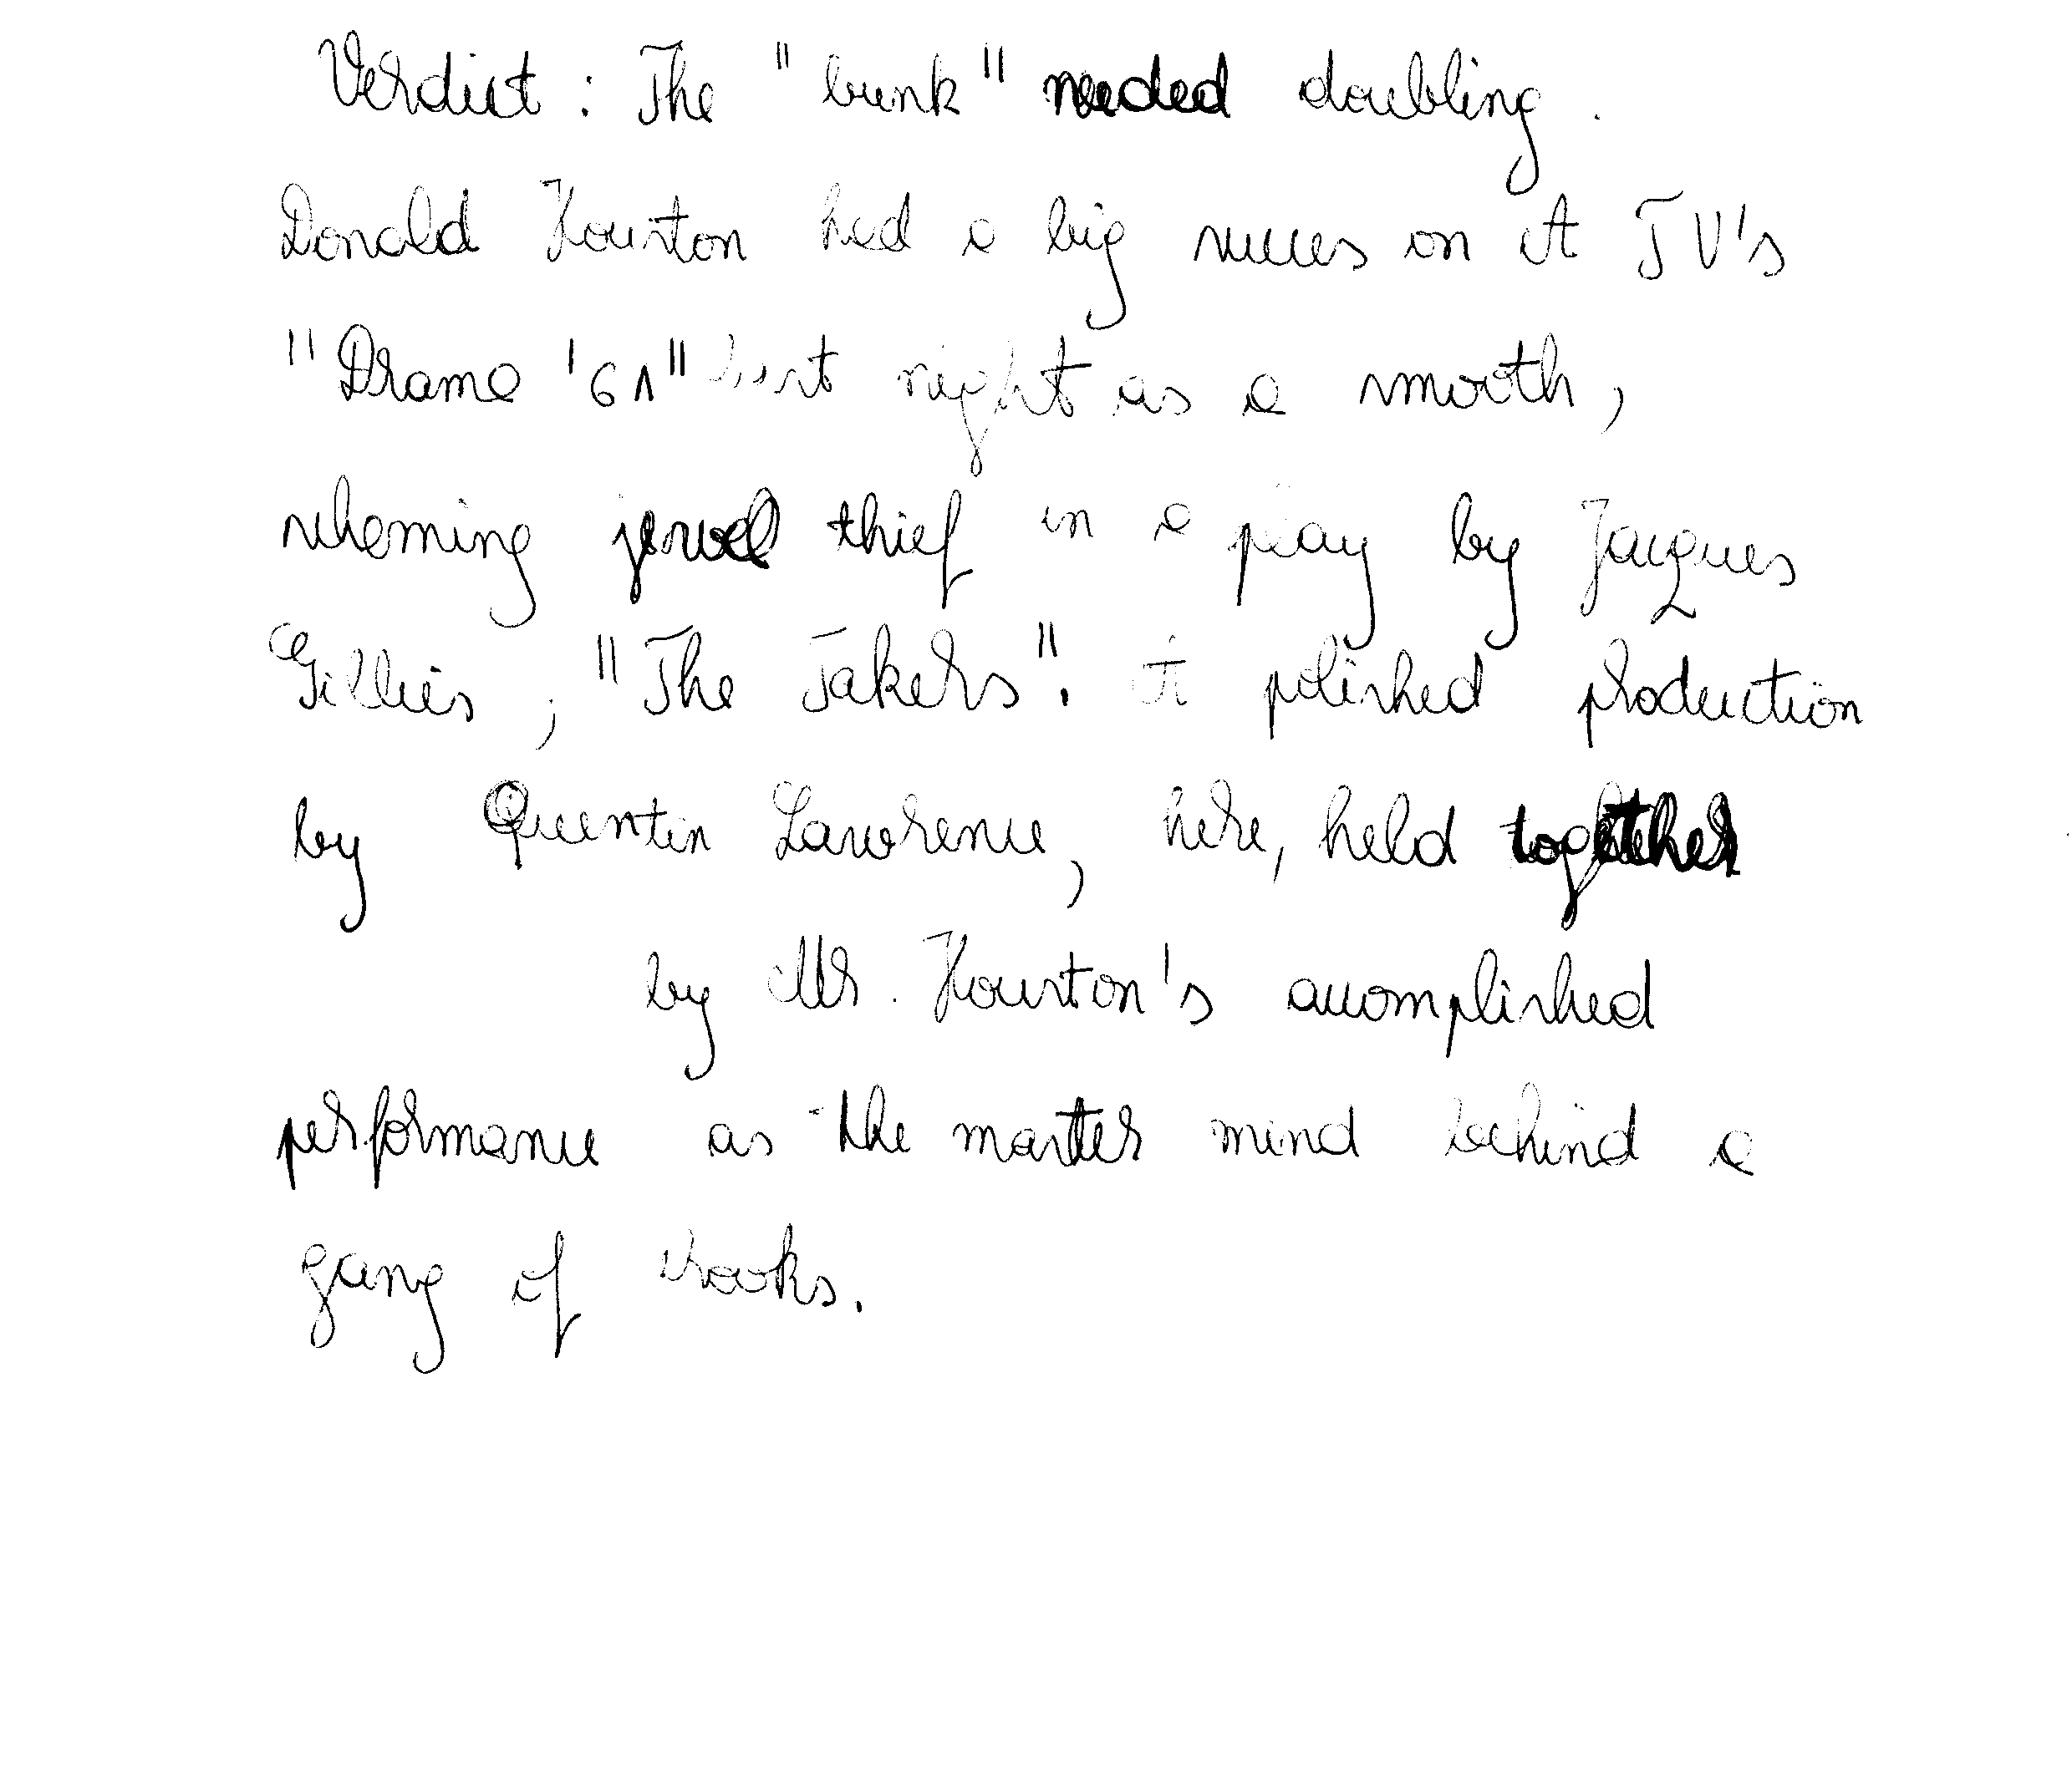 Verdict : The "bunk" needed doubling .
Donald Houston had a big succes on A TV's
"Drama '61" last night as a smooth,
scheming jewel thief in a play by Jacques
Gillies , "The Takers". A polished production
by Quentin Lawrence, here, held together
by Mr. Houston's accomplished
performance as the master mind behind a
gang of crooks.